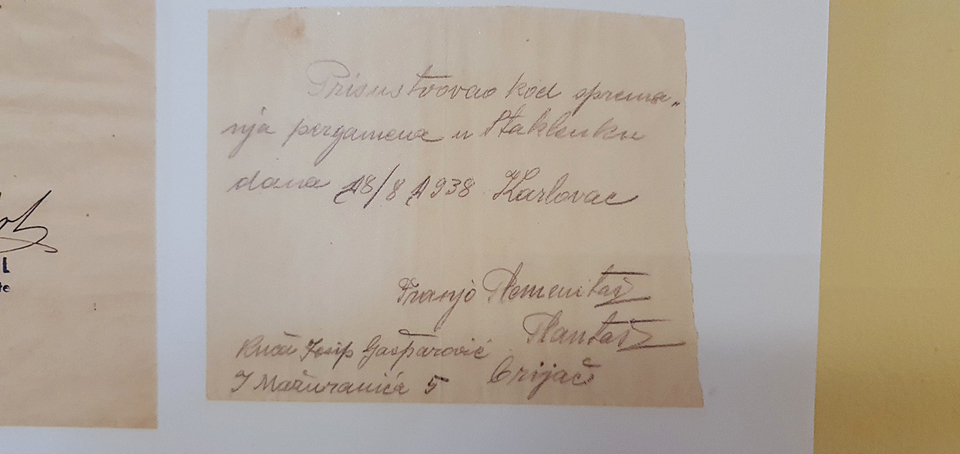 Prisustvovao kod sprema„
nja pergamena u Staklenku
dana 18/8 1938 Karlovac
Franjo Plemenitaš
Kuća Josip Gašparović
I Mažuranića 5